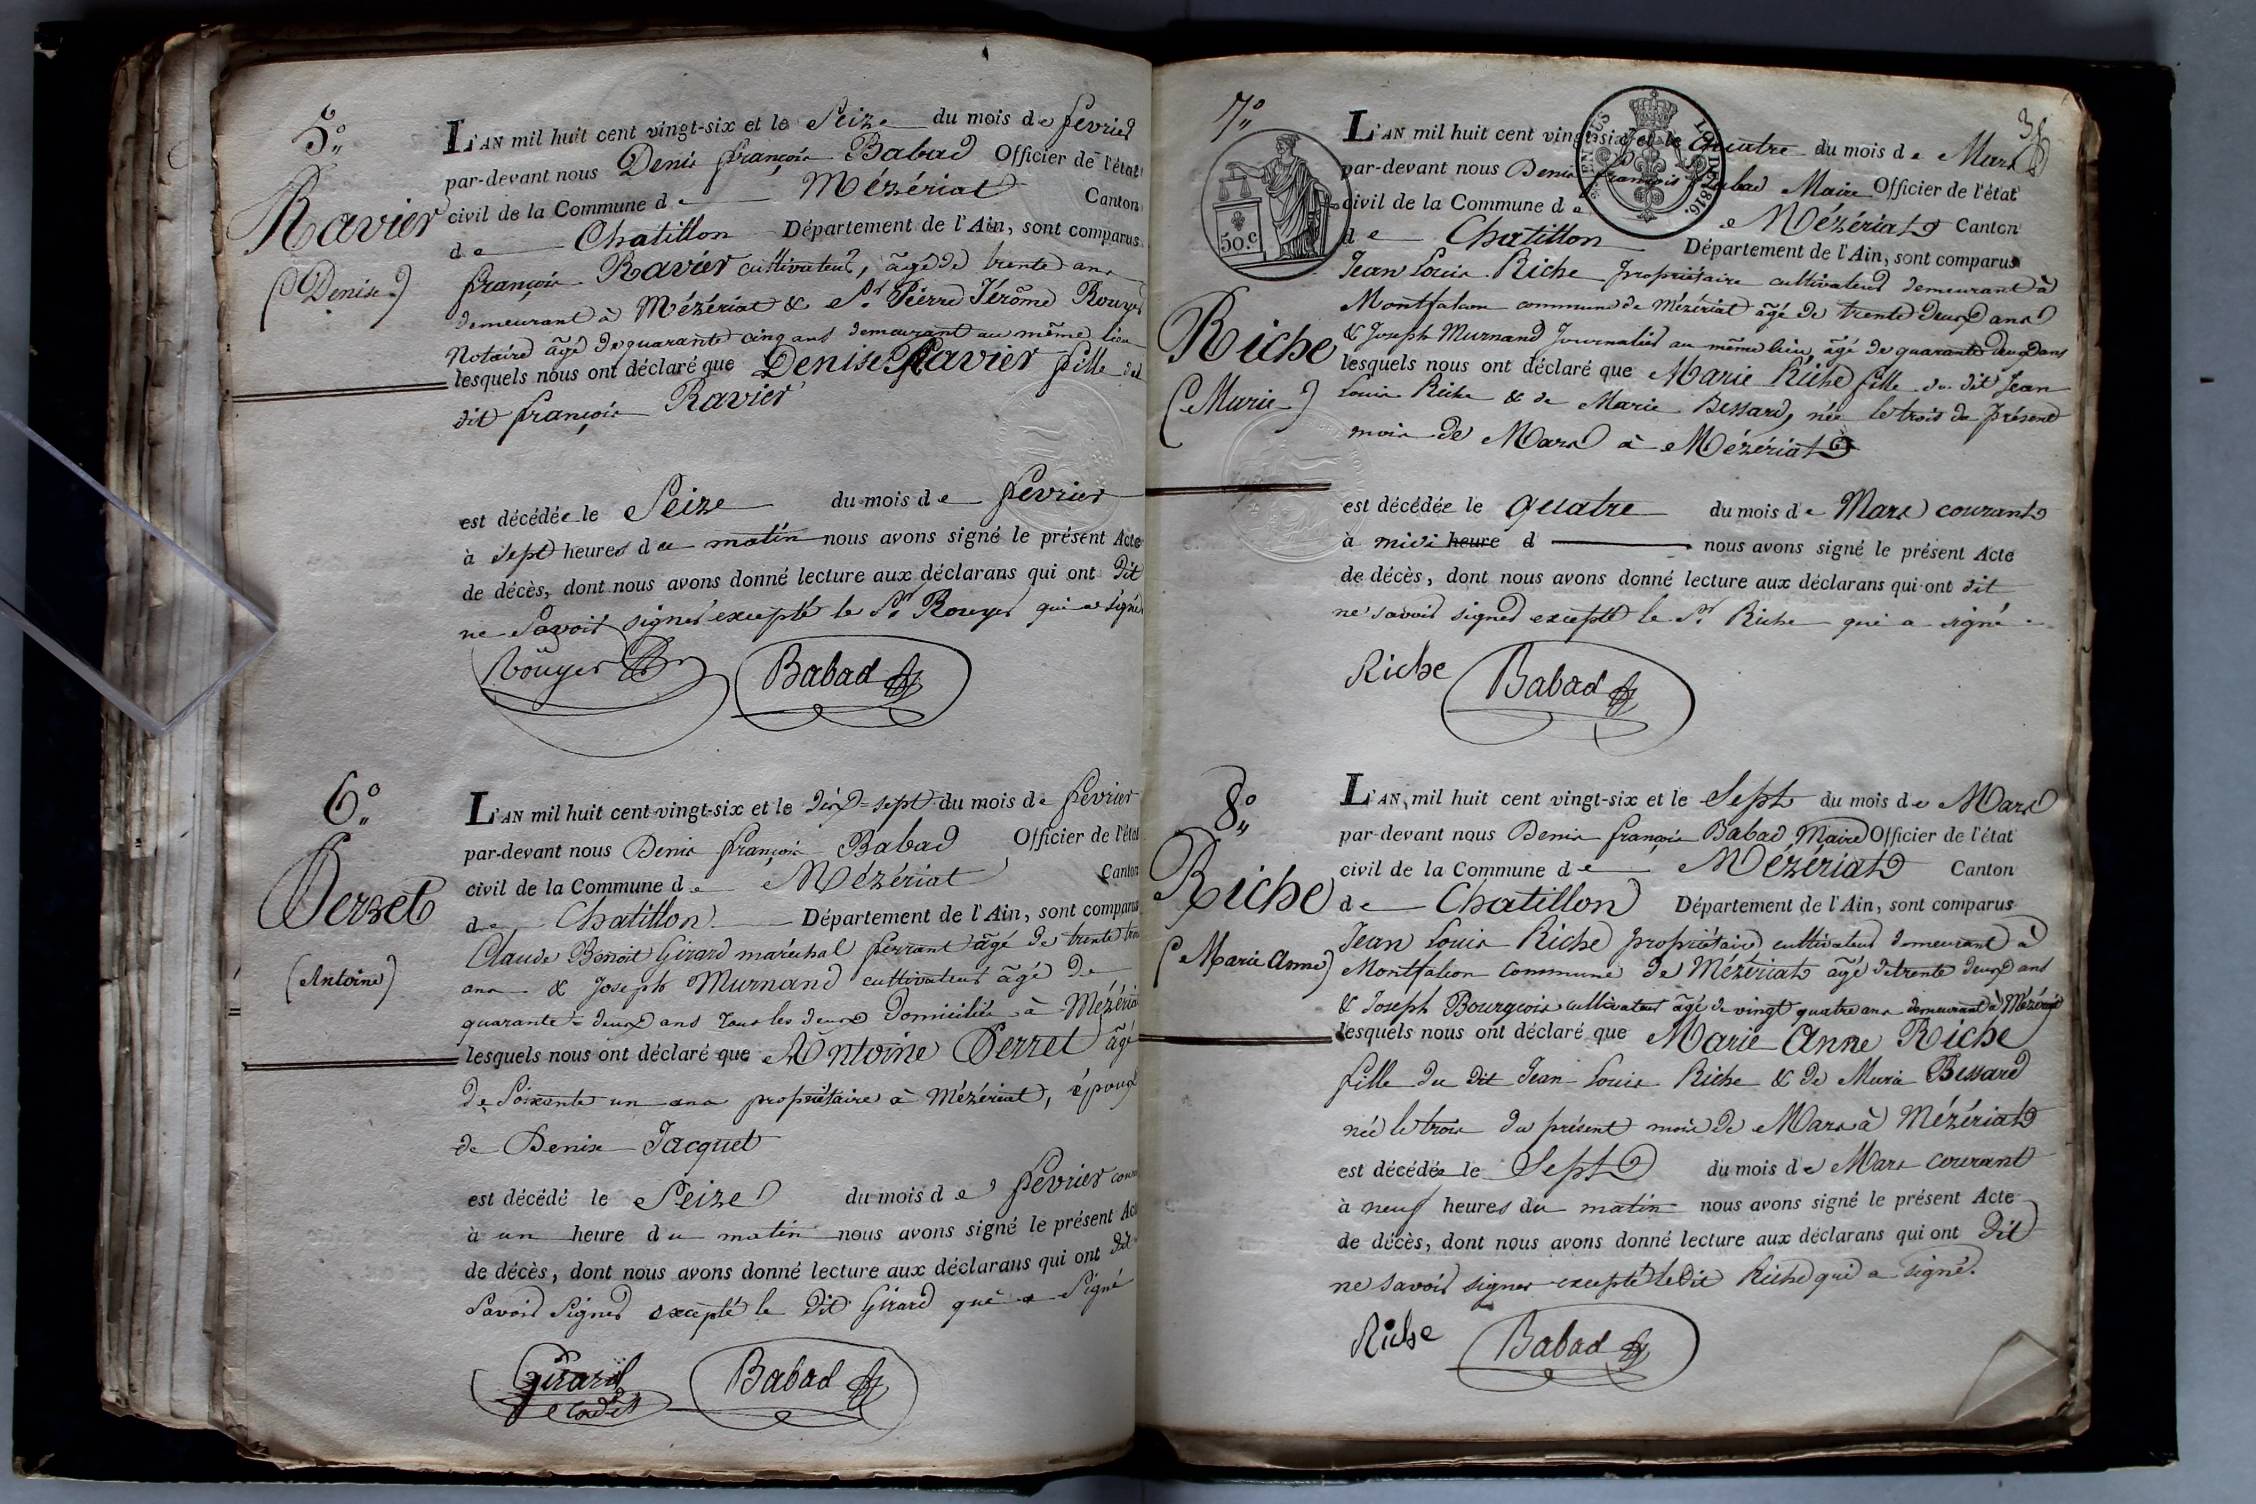 5°
Ravier
(Denise)
L'AN mil huit cent vingt-six et le Seize du mois de février
par-devant nous Denis françois Babad Officier de l'état
civil de la Commune de Mézériat Canton
de Chatillon Département de l'Ain, sont comparus
françois Ravier cultivateur, âgé de trente ans
demeurant à Mézériat & Sr Pierre Jérôme Rouyer
Notaire âgé de quarante cinq ans demeurant au même lieu
lesquels nous ont déclaré que Denise Ravier fille du
dit françois Ravier
est décédée le Seize du mois de février
à sept heures du matin nous avons signé le présent Acte
de décès, dont nous avons donné lecture aux déclarans qui ont dit
ne Savoir signer excepté le Sr Rouyer qui a signé
Rouyer Babad
6°
Perret
(Antoine)
L'AN mil huit cent vingt-six et le dix-sept du mois de février
par-devant nous Denis françois Babad Officier de l'état
civil de la Commune de Mézériat Canton
de Chatillon Département de l'Ain, sont comparus
Claude Benoit Girard maréchal ferrant âgé de trente trois
ans & Joseph Murnand cultivateur âgé de
quarante-deux ans tous les deux Domiciliés à Mézériat
lesquels nous ont déclaré que Antoine Perret âgé
de Soixante un ans propriétaire à Mézériat, époux
de Denise Jacquet
est décédé le Seize du mois de février cour
à un heure du matin nous avons signé le présent Acte
de décès, dont nous avons donné lecture aux déclarans qui ont dit
Savoir Signer excepté le dit Girard qui a Signé
Girard Babad
7°
36
50.c
LOI DE 1816.
Riche
(Marie)
L'AN mil huit cent vingt-six et le Quatre du mois de Mars
par-devant nous Denis françois Babad Maire Officier de l'état
civil de la Commune de Mézériat Canton
de Chatillon Département de l'Ain, sont comparus
Jean Louis Riche propriétaire cultivateur demeurant à
Montfalcon commune de Mézériat âgé de trente deux ans
& Joseph Murnand Journalier au même lieu, âgé de quarante deux ans
lesquels nous ont déclaré que Marie Riche fille du dit Jean
Louis Riche & de Marie Bessard, née le trois du présent
mois de Mars à Mézériat
est décédée le quatre du mois de Mars courant
à midi heure d nous avons signé le présent Acte
de décès, dont nous avons donné lecture aux déclarans qui ont dit
ne savoir signer excepté le Sr Riche qui a signé
Riche Babad
8°
Riche
(Marie Anne)
L'AN mil huit cent vingt-six et le Sept du mois de Mars
par-devant nous Denis françois Babad Maire Officier de l'état
civil de la Commune de Mézériat Canton
de Chatillon Département de l'Ain, sont comparus
Jean Louis Riche propriétaire cultivateur demeurant à
Montfalcon Commune de Mézériat âgé de trente deux ans
& Joseph Bourgeois cultivateur âgé de vingt quatre ans demeurant à Mézériat
lesquels nous ont déclaré que Marie Anne Riche
fille du dit Jean Louis Riche & de Marie Bessard
née le trois du présent mois de Mars à Mézériat
est décédée le Sept du mois de Mars courant
à neuf heures du matin nous avons signé le présent Acte
de décès, dont nous avons donné lecture aux déclarans qui ont dit
ne savoir signer excepté le dit Riche qui a signé.
Riche Babad